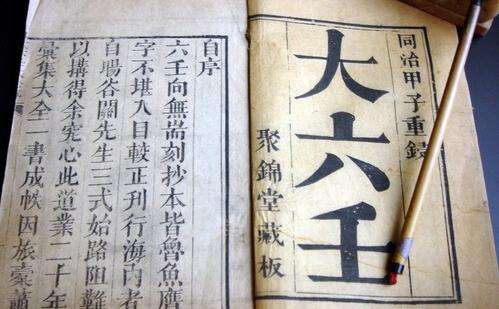 同治甲子重鐫
大六壬
聚錦堂藏板
自序
六壬向無耑刻抄本皆魯魚贗
字不堪入目較正刊行海內者
自場谷關先生三式始路阻難
以搆得余究心此道業二十年
彙集大全一書成帙因旅橐蕭